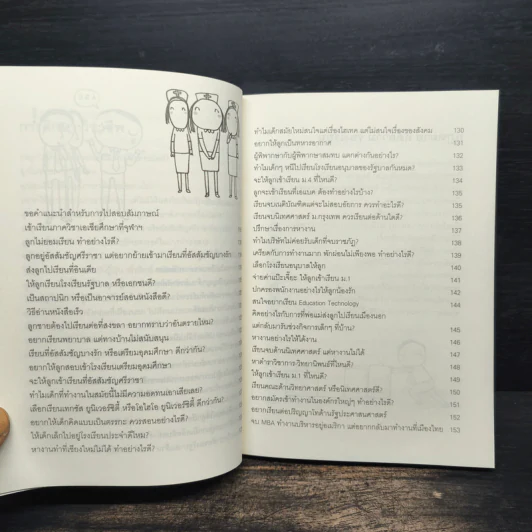 ขอคำแนะนำสำหรับการไปสอบสัมภาษณ์
เข้าเรียนภาควิชาเอเชียศึกษาที่จุฬาฯ
ลูกไม่ยอมเรียน ทำอย่างไรดี?
ลูกอยู่อัสสัมชัญศรีราชา แต่อยากย้ายเข้ามาเรียนที่อัสสัมชัญบางรัก
ส่งลูกไปเรียนที่อินเดีย
ให้ลูกเรียนโรงเรียนรัฐบาล หรือเอกชนดี?
เป็นสถาปนิก หรือเป็นอาจารย์สอนหนังสือดี?
วิธีอ่านหนังสือเร็ว
ลูกชายต้องไปเรียนต่อที่สงขลา อยากทราบว่าอันตรายไหม?
อยากเรียนพยาบาล แต่ทางบ้านไม่สนับสนุน
เรียนที่อัสสัมชัญบางรัก หรือเตรียมอุดมศึกษา ดีกว่ากัน?
อยากให้ลูกสอบเข้าโรงเรียนเตรียมอุดมศึกษา
จะให้ลูกเข้าเรียนที่อัสสัมชัญศรีราชา
ทำไมเด็กที่ทำงานในสมัยนี้ไม่มีความอดทนเอาเสียเลย?
เลือกเรียนเทกซัส ยูนิเวอร์ซิตี้ หรือโอไฮโอ ยูนิเวอร์ซิตี้ ดีกว่ากัน?
อยากให้เด็กคิดแบบเป็นตรรกะ ควรสอนอย่างไรดี?
ให้เด็กเล็กไปอยู่โรงเรียนประจำดีไหม?
หางานทำที่เชียงใหม่ไม่ได้ ทำอย่างไรดี?
ทำไมเด็กสมัยใหม่สนใจแต่เรื่องไฮเทค แต่ไม่สนใจเรื่องของสังคม 130
อยากให้ลูกเป็นทหารอากาศ 131
ผู้พิพากษากับผู้พิพากษาสมทบ แตกต่างกันอย่างไร? 132
ทำไมเด็กๆ หนีไปเรียนโรงเรียนอนุบาลของรัฐบาลกันหมด? 133
จะให้ลูกเข้าเรียน ม.4 ที่ไหนดี? 134
ลูกจะเข้าเรียนที่เอแบค ต้องทำอย่างไรบ้าง? 135
เรียนจบเนติบัณฑิตแต่จะไม่สอบอัยการ ควรทำอะไรดี? 136
เรียนจบนิเทศศาสตร์ ม.กรุงเทพ ควรเรียนต่อด้านใดดี? 137
ปรึกษาเรื่องการหางาน 138
ทำไมบริษัทไม่ค่อยรับเด็กที่จบราชภัฏ? 139
เครียดกับการทำงานมาก พักผ่อนไม่เพียงพอ ทำอย่างไรดี? 139
เลือกโรงเรียนอนุบาลให้ลูก 140
จ่ายค่าแป๊ะเจี๊ยะ ให้ลูกเข้าเรียน ม.1 141
ปกครองพนักงานอย่างไรให้ลูกน้องรัก 142
สนใจอยากเรียน Education Technology 144
คิดอย่างไรกับการที่พ่อแม่ส่งลูกไปเรียนเมืองนอก
แต่กลับมารับช่วงกิจการเล็กๆ ที่บ้าน? 145
หางานอย่างไรให้ได้งาน 146
เรียนจบด้านนิเทศศาสตร์ แต่หางานไม่ได้ 147
หาตำราวิชาการ-วิทยานิพนธ์ที่ไหนดี? 148
ให้ลูกเข้าเรียน ม.1 ที่ไหนดี? 149
เรียนคณะด้านวิทยาศาสตร์ หรือนิเทศศาสตร์ดี? 150
อยากสมัครเข้าทำงานในองค์กรใหญ่ๆ ทำอย่างไรดี? 151
อยากเรียนต่อปริญญาโทด้านรัฐประศาสนศาสตร์ 152
จบ MBA ทำงานบริหารอยู่อเมริกา แต่อยากกลับมาทำงานที่เมืองไทย 153